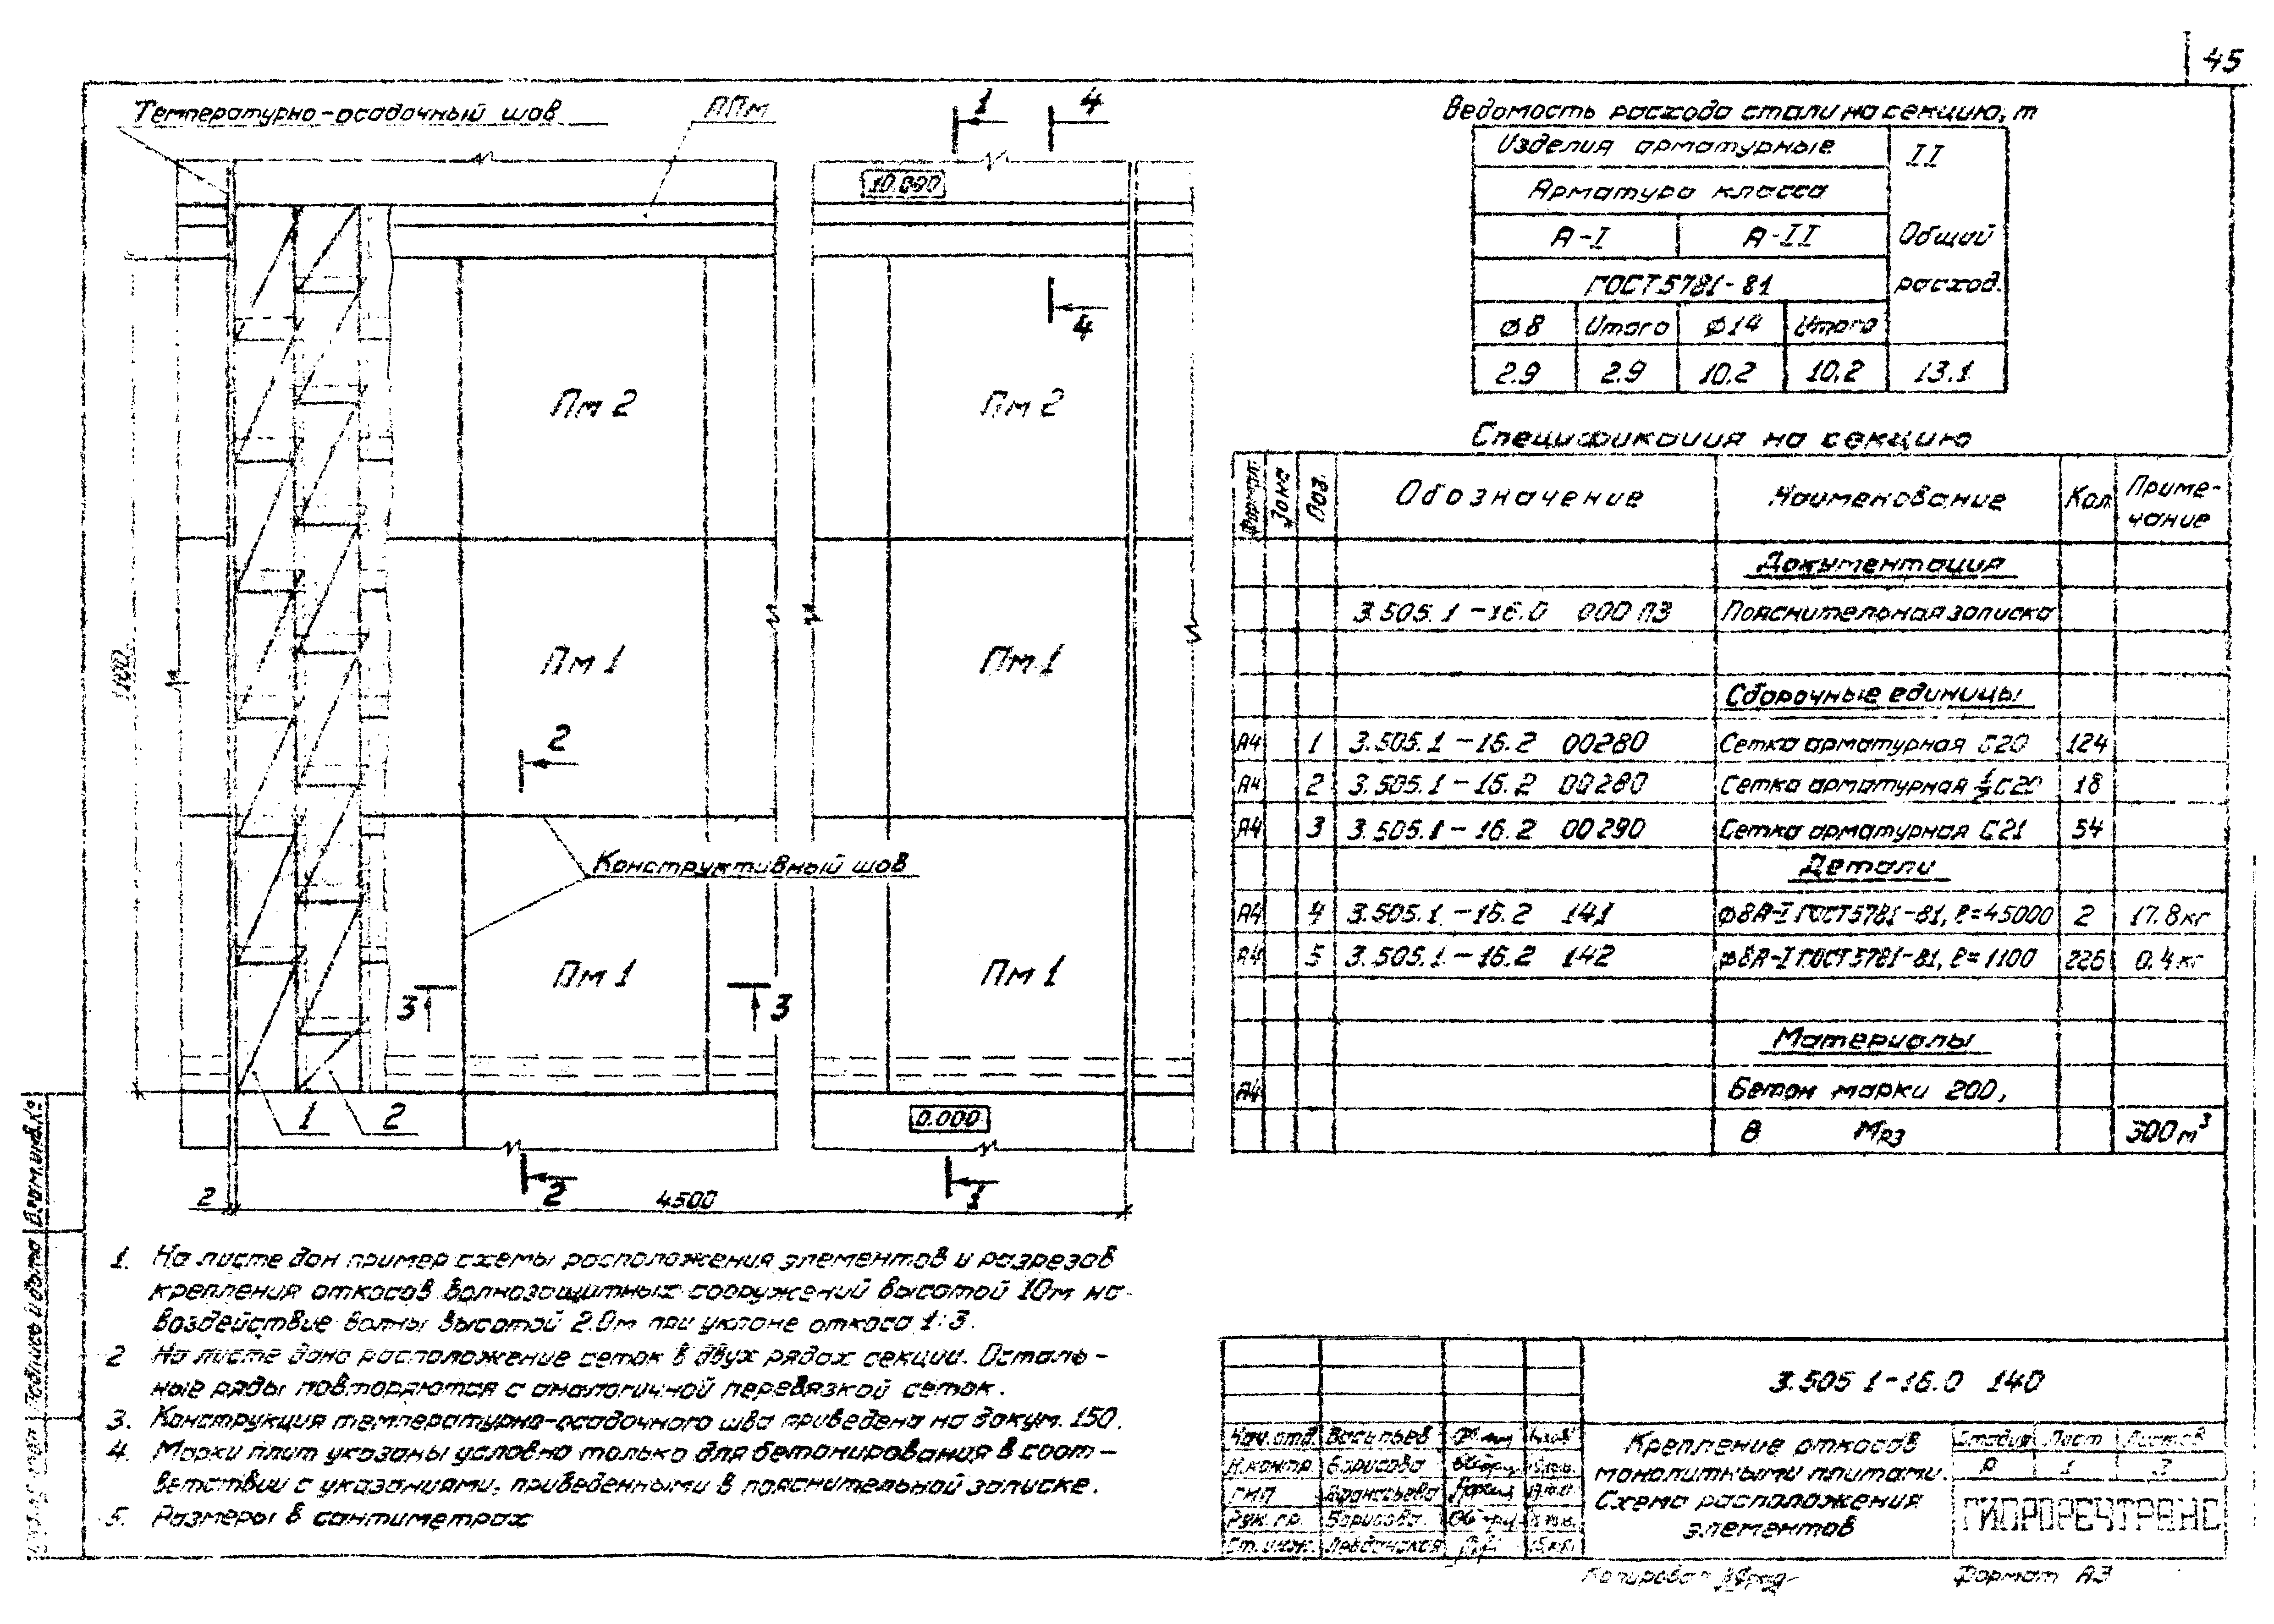 45
Температурно-осадочный шов
ППм
1
4
10.000
4
Пм 2
Пм 2
1100
Пм 1
Пм 1
2
Конструктивный шов
3
Пм 1
3
Пм 1
1
2
0.000
2
2
4500
1
Ведомость расхода стали на секцию, т
Изделия арматурные
II
Арматура класса
А-I
А-II
Общий
ГОСТ 5781-81
расход.
ø8
Итого
ø14
Итого
2.9
2.9
10.2
10.2
13.1
Спецификация на секцию
Формат
Зона
Поз.
Обозначение
Наименование
Кол
Приме-
чание
Документация
3.505.1-16.0 000 ПЗ Пояснительная записка
Сборочные единицы
А4 1 3.505.1-16.2 00280 Сетка арматурная С20 124
А4 2 3.505.1-16.2 00280 Сетка арматурная ½С20 18
А4 3 3.505.1-16.2 00290 Сетка арматурная С21 54
Детали
А4 4 3.505.1-16.2 141 ø8А-I ГОСТ5781-81, ℓ=45000 2 17.8кг
А4 5 3.505.1-16.2 142 ø8А-I ГОСТ5781-81, ℓ=1100 226 0.4кг
Материалы
А4 Бетон марки 200,
В Мрз 300м³
1. На листе дан пример схемы расположения элементов и разрезов
крепления откосов волнозащитных сооружений высотой 10м на
воздействие волны высотой 2.0м при уклоне откоса 1:3.
2 На листе дано расположение сеток в двух рядах секции. Осталь-
ные ряды повторяются с аналогичной перевязкой сеток.
3. Конструкция температурно-осадочного шва приведена на докум. 150.
4. Марки плит указаны условно только для бетонирования в соот-
ветствии с указаниями, приведенными в пояснительной записке.
5. Размеры в сантиметрах
3.505 1-16.0 140
Нач.отд. Васильев
Н.контр. Борисова
ГИП Афанасьева
Рук.гр. Борисова
Ст.инж.
Крепление откосов
монолитными плитами.
Схема расположения
элементов
Стадия Лист Листов
Р 1 3
ГИПРОРЕЧТРАНС
Копировал
Формат А3
Взам.инв.№
Подпись и дата